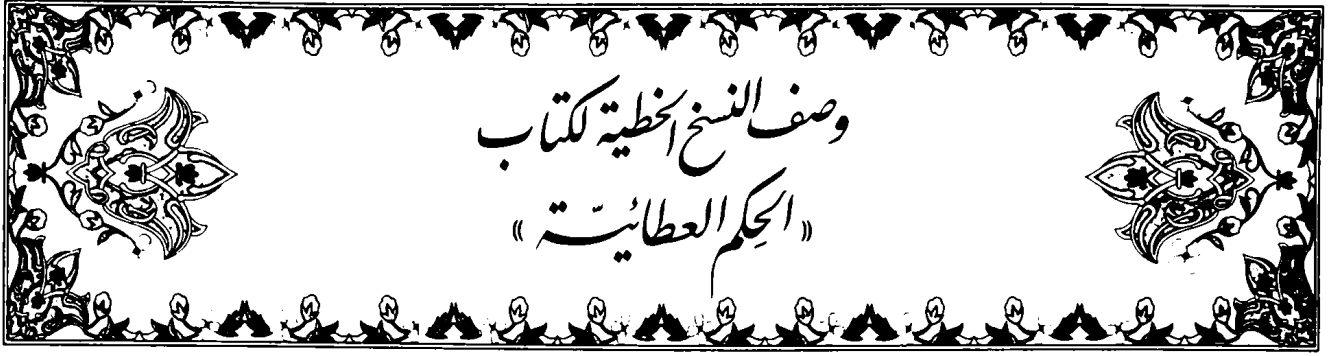 وصف النسخ الخطية لكتاب
« الحِكم العطائيّة »